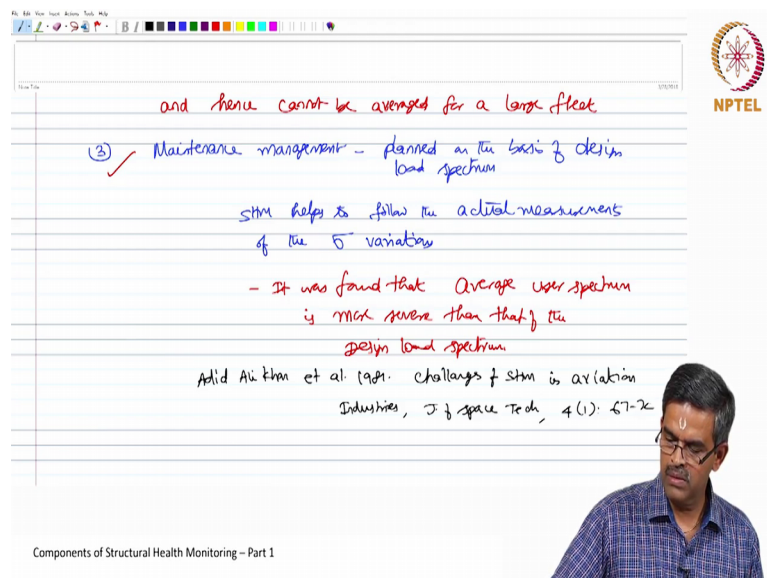 File Edit View Insert Actions Tools Help
B I
Note Title
NPTEL
and hence cannot be averaged for a large fleet
③ Maintenance management - planned on the basis of design
load spectrum
SHM helps to follow the actual measurements
of the σ variations
- It was found that average user spectrum
is more severe than that of the
Design load spectrum
Adid Ali Khan et al. Challanges of SHM is aviation
Industries, J. of space Tech, 4(1). 67-
Components of Structural Health Monitoring – Part 1